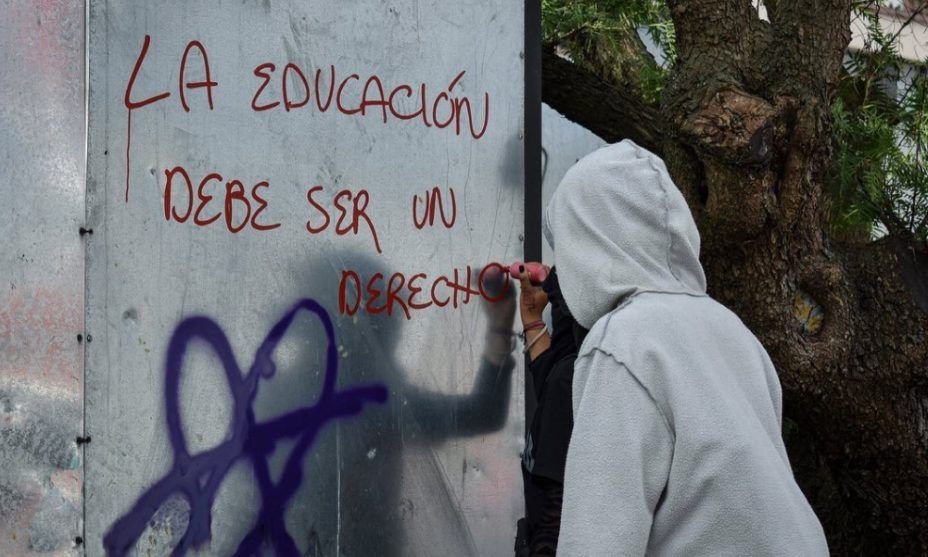 La EDUCACIÓN
DEBE SER UN
DERECHO